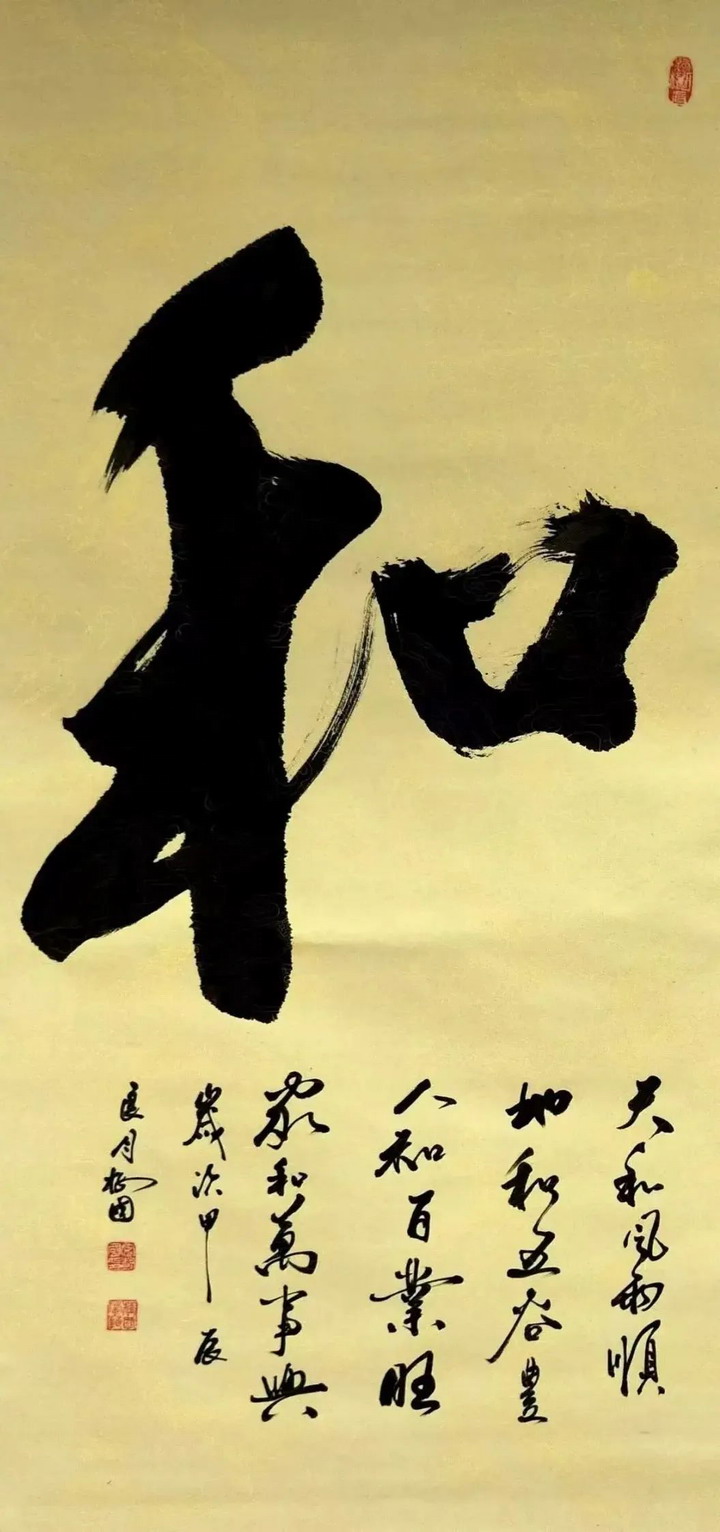 和
天和風雨順
地和五谷豐
人和百業旺
家和萬事興
歲次甲辰
良月